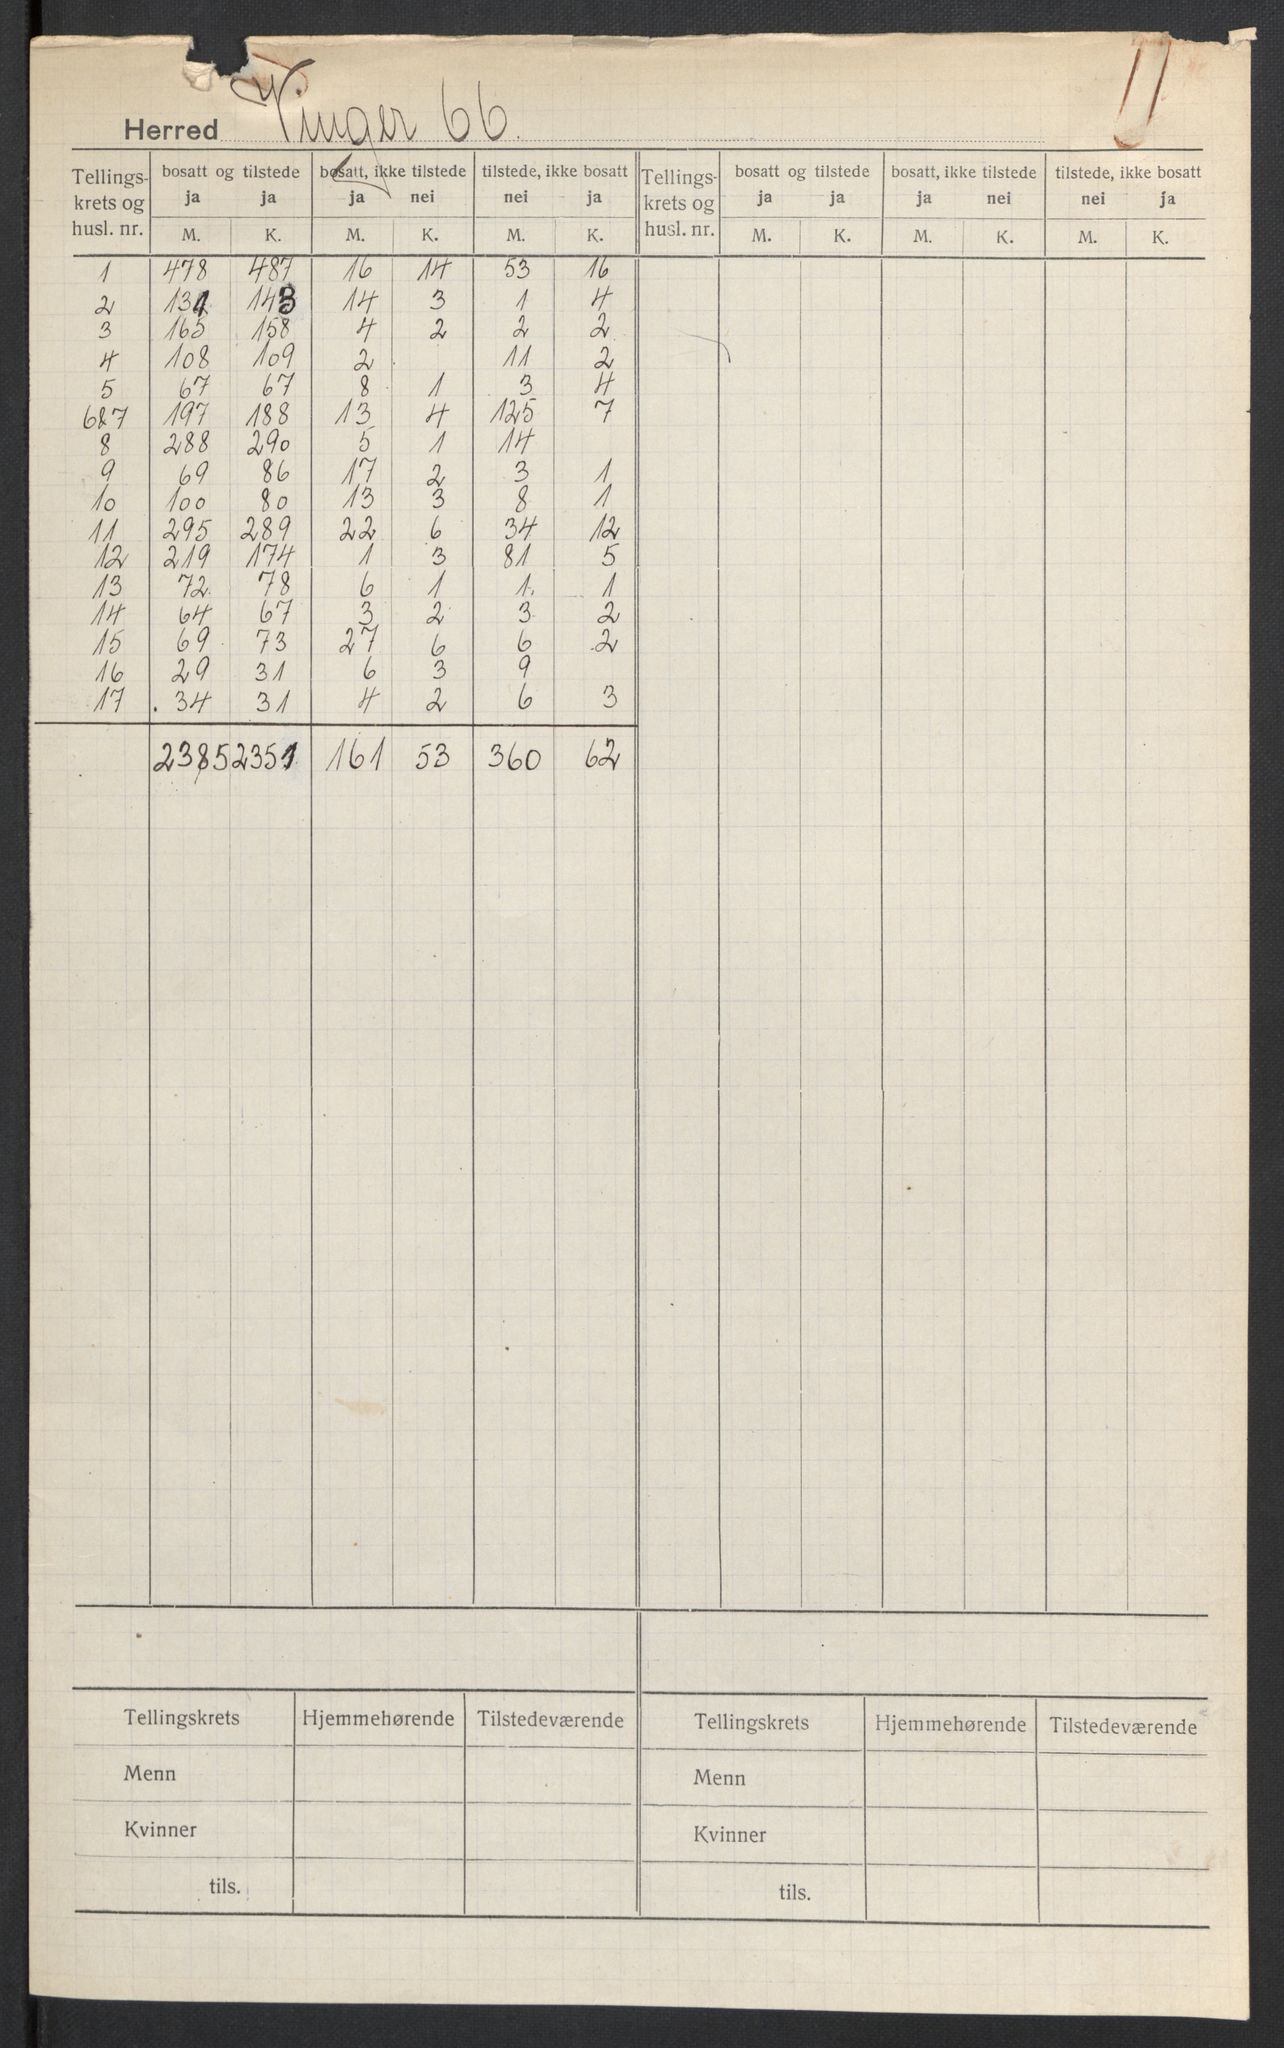 Herred Vinger 66.
Tellings- krets og husl. nr. | bosatt og tilstede ja ja | bosatt, ikke tilstede ja nei | tilstede, ikke bosatt nei ja | Tellings- krets og husl. nr. | bosatt og tilstede ja ja | bosatt, ikke tilstede ja nei | tilstede, ikke bosatt nei ja
M. K. M. K. M. K. M. K. M. K. M. K.
1 478 487 16 14 53 16
2 131 143 14 3 1 4
3 165 158 4 2 2 2
4 108 109 2 11 2
5 67 67 8 1 3 4
6&7 197 188 13 4 125 7
8 288 290 5 1 14
9 69 86 17 2 3 1
10 100 80 13 3 8 1
11 295 289 22 6 34 12
12 219 174 1 3 81 5
13 72 78 6 1 1 1
14 64 67 3 2 3 2
15 69 73 27 6 6 2
16 29 31 6 3 9
17 34 31 4 2 6 3
2385 2351 161 53 360 62
Tellingskrets Hjemmehørende Tilstedeværende Tellingskrets Hjemmehørende Tilstedeværende
Menn Menn
Kvinner Kvinner
tils. tils.